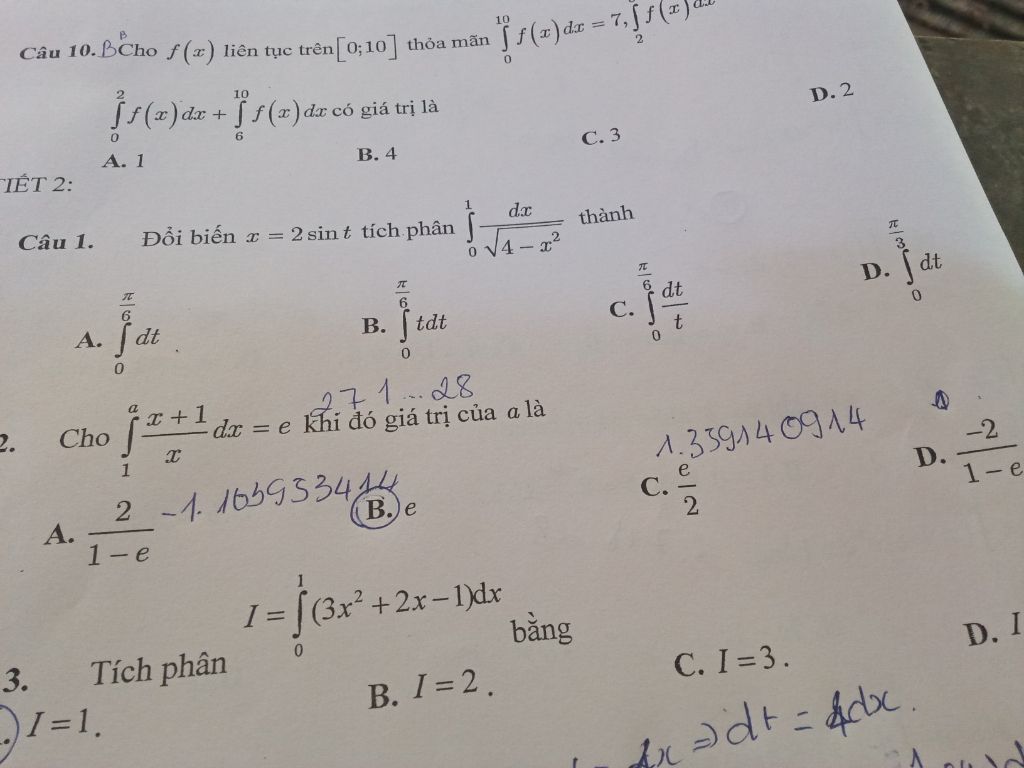 Câu 10. B B Cho f(x) liên tục trên [0;10] thỏa mãn ∫₀¹⁰ f(x)dx = 7, ∫₂ f(x)dx
∫₀² f(x)dx + ∫₆¹⁰ f(x)dx có giá trị là
A. 1 B. 4 C. 3 D. 2
TIẾT 2:
Câu 1. Đổi biến x = 2sint tích phân ∫₀¹ dx/√(4−x²) thành
A. ∫₀^(π/6) dt B. ∫₀^(π/6) tdt C. ∫₀^(π/6) dt/t D. ∫₀^(π/3) dt
271...28
2. Cho ∫₁ᵃ (x+1)/x dx = e khi đó giá trị của a là
-1.163953414 1.359140914
A. 2/(1−e) B. e C. e/2 D. −2/(1−e
3. Tích phân I = ∫₀¹ (3x² + 2x − 1)dx bằng
I = 1. B. I = 2. C. I = 3. D. I
x ⇒ dt = dx.